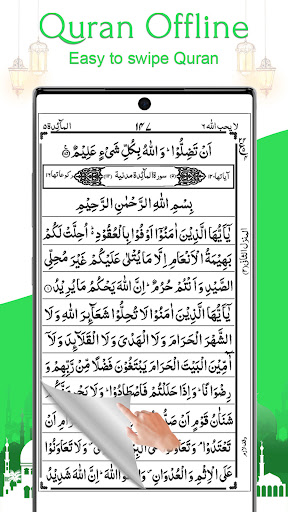 Quran Offline
Easy to swipe Quran
لا یحب الله ٦ ١٤٧ المآئدة ٥
اَنْ تَضِلُّوْا ؕ وَاللّٰهُ بِكُلِّ شَیْءٍ عَلِیْمٌ
اٰیاتها ١٢٠ (٥) سورة المآئدة مدنیة (١١٢) ركوعاتها ١٦
بِسْمِ اللّٰهِ الرَّحْمٰنِ الرَّحِیْمِ
یٰۤاَیُّهَا الَّذِیْنَ اٰمَنُوْۤا اَوْفُوْا بِالْعُقُوْدِ ؕ اُحِلَّتْ لَكُمْ
بَهِیْمَةُ الْاَنْعَامِ اِلَّا مَا یُتْلٰی عَلَیْكُمْ غَیْرَ مُحِلِّی
الصَّیْدِ وَ اَنْتُمْ حُرُمٌ ؕ اِنَّ اللّٰهَ یَحْكُمُ مَا یُرِیْدُ
یٰۤاَیُّهَا الَّذِیْنَ اٰمَنُوْا لَا تُحِلُّوْا شَعَآئِرَ اللّٰهِ وَ لَا
الشَّهْرَ الْحَرَامَ وَ لَا الْهَدْیَ وَ لَا الْقَلَآئِدَ وَ لَاۤ
آٰمِّیْنَ الْبَیْتَ الْحَرَامَ یَبْتَغُوْنَ فَضْلًا مِّنْ رَّبِّهِمْ وَ
رِضْوَانًا ؕ وَ اِذَا حَلَلْتُمْ فَاصْطَادُوْا ؕ وَ لَا یَجْرِمَنَّكُمْ
شَنَاٰنُ قَوْمٍ اَنْ
تَعْتَدُوْا ۘ وَ تَعَاوَنُوْا وَ لَا تَعَاوَنُوْا
عَلَی الْاِثْمِ وَ الْعُدْوَانِ ۪ وَ اتَّقُوا اللّٰهَ ؕ اِنَّ اللّٰهَ شَدِیْدُ